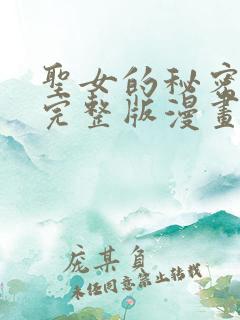 聖女的秘密
完整版漫畫
庞某负
未经同意禁止转载